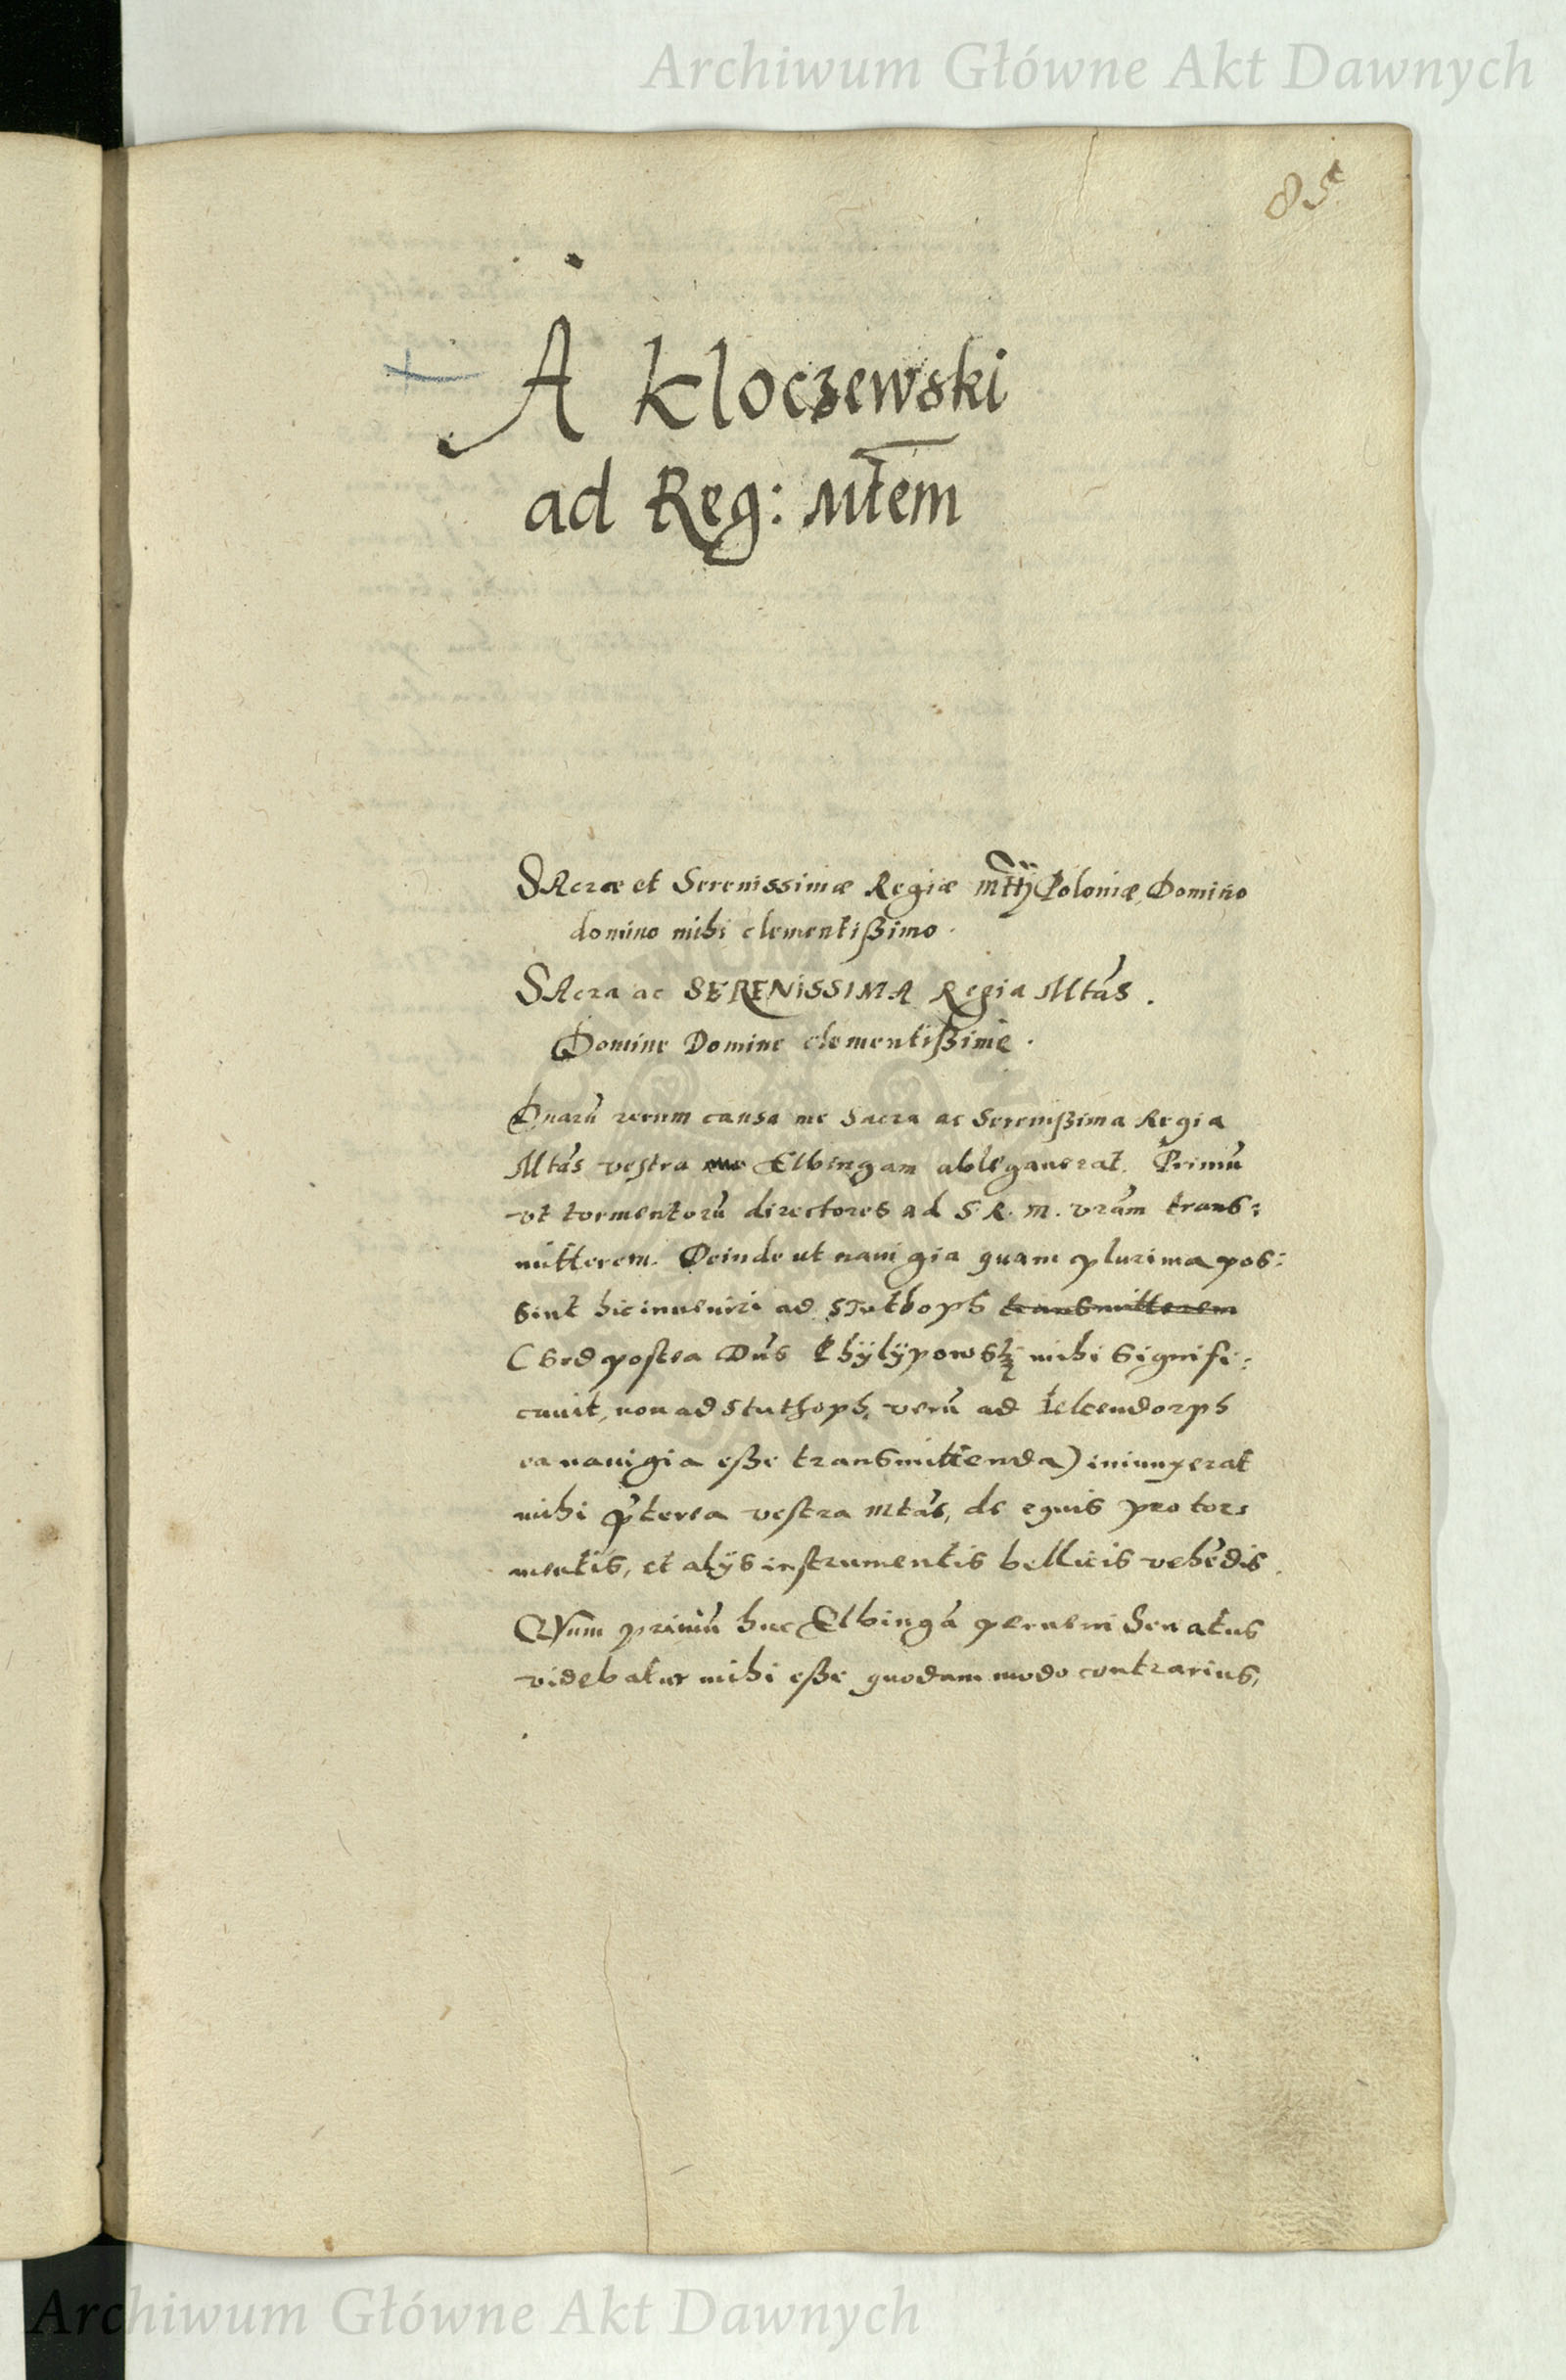 Archiwum Główne Akt Dawnych
85
A Kloczewski
ad Reg: Mtem
SAcræ et Serenissimæ Regiæ Mttj Poloniæ, Domino
domino mihi clementißimo.
SAcra ac SERENISSIMA Regia Mtas.
Domine Domine clementißime.
Duarū rerum causa me Sacra ac Serenißima Regia
Mtas vestra Elbingam ablegauerat. Primū
vt tormentorū directores ad S. R. M. vrām trans:
mitterem. Deinde ut nauigia quam plurima pos:
sint hic inueniri ad Stuthoph transmitterem
(Sed postea Dūs Chÿlÿpowskj mihi signifi:
cauit, non ad Stuthoph, verū ad Ielcendorph
ea nauigia eße transmittenda) iniunxerat
mihi p̄terea vestra Mtas, de equis pro tor:
mentis, et alijs instrumentis bellicis vehēdis.
QVum primū huc Elbingā perueni Senatus
videbatur mihi eße quodam modo contrarius,
Archiwum Główne Akt Dawnych